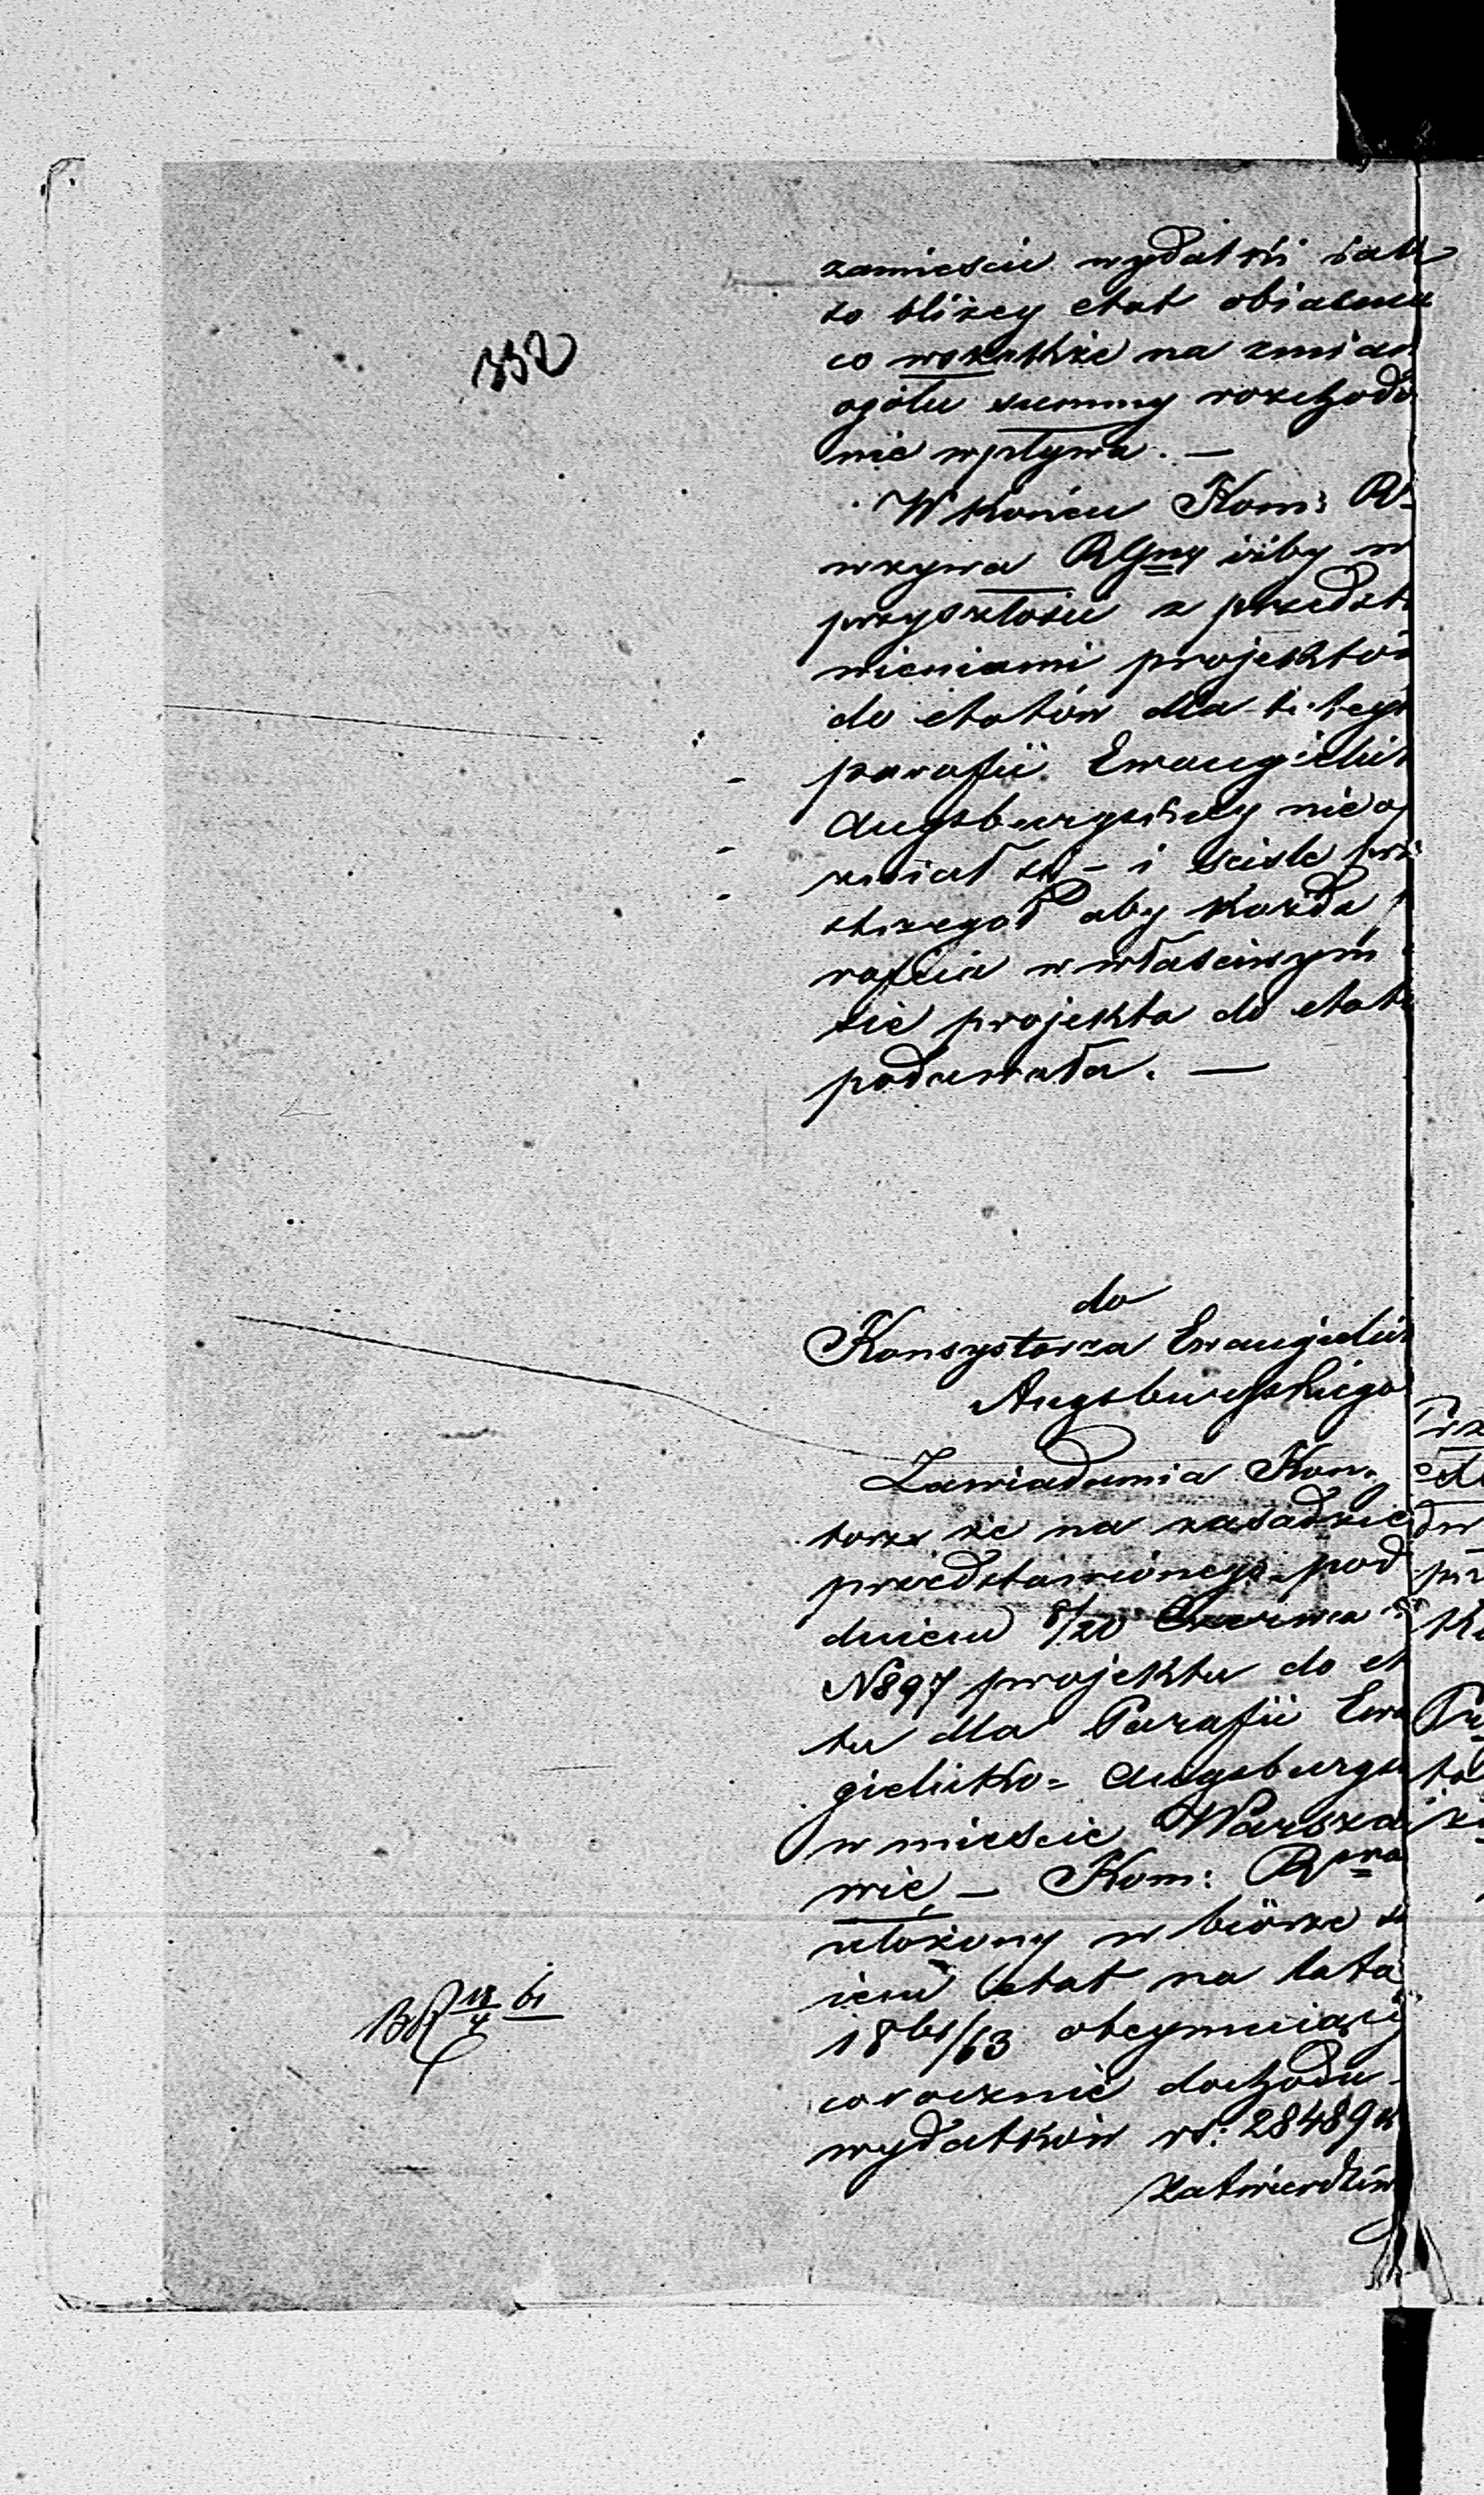 332
zamieście wydatki jak
to bliżey etat obiaśnia
co wszakże na zmian
ogółu summy rozchodu
nie wpływa. —
W końcu Kom: R.
wzywa RGny iżby w
przyszłości z przedsta
wieniami projektów
do etatów dla tutey
parafii Ewangielick
Augsburgskiey nie o
źniał się – i ściśle prze
strzegał aby każda p
rafia w właściwym
sie projekta do etatu
podawała. —
do
Konsystorza Ewangielick
Augsburgskiego
Zawiadamia Kon.
torz że na zasadzie
przedstawionego pod
dniem 8/20 Czerwca
N897 projektu do et
tu dla Parafii Ewa
gielicko= Augsburgs
w mieście Warsza
wie, — Kom: Rwa
ułożony w biórze s
iem etat na lata
1861/63 obeymuiący
corocznie dochodu
wydatków rs: 28489 k
zatwierdziw
18/4 61